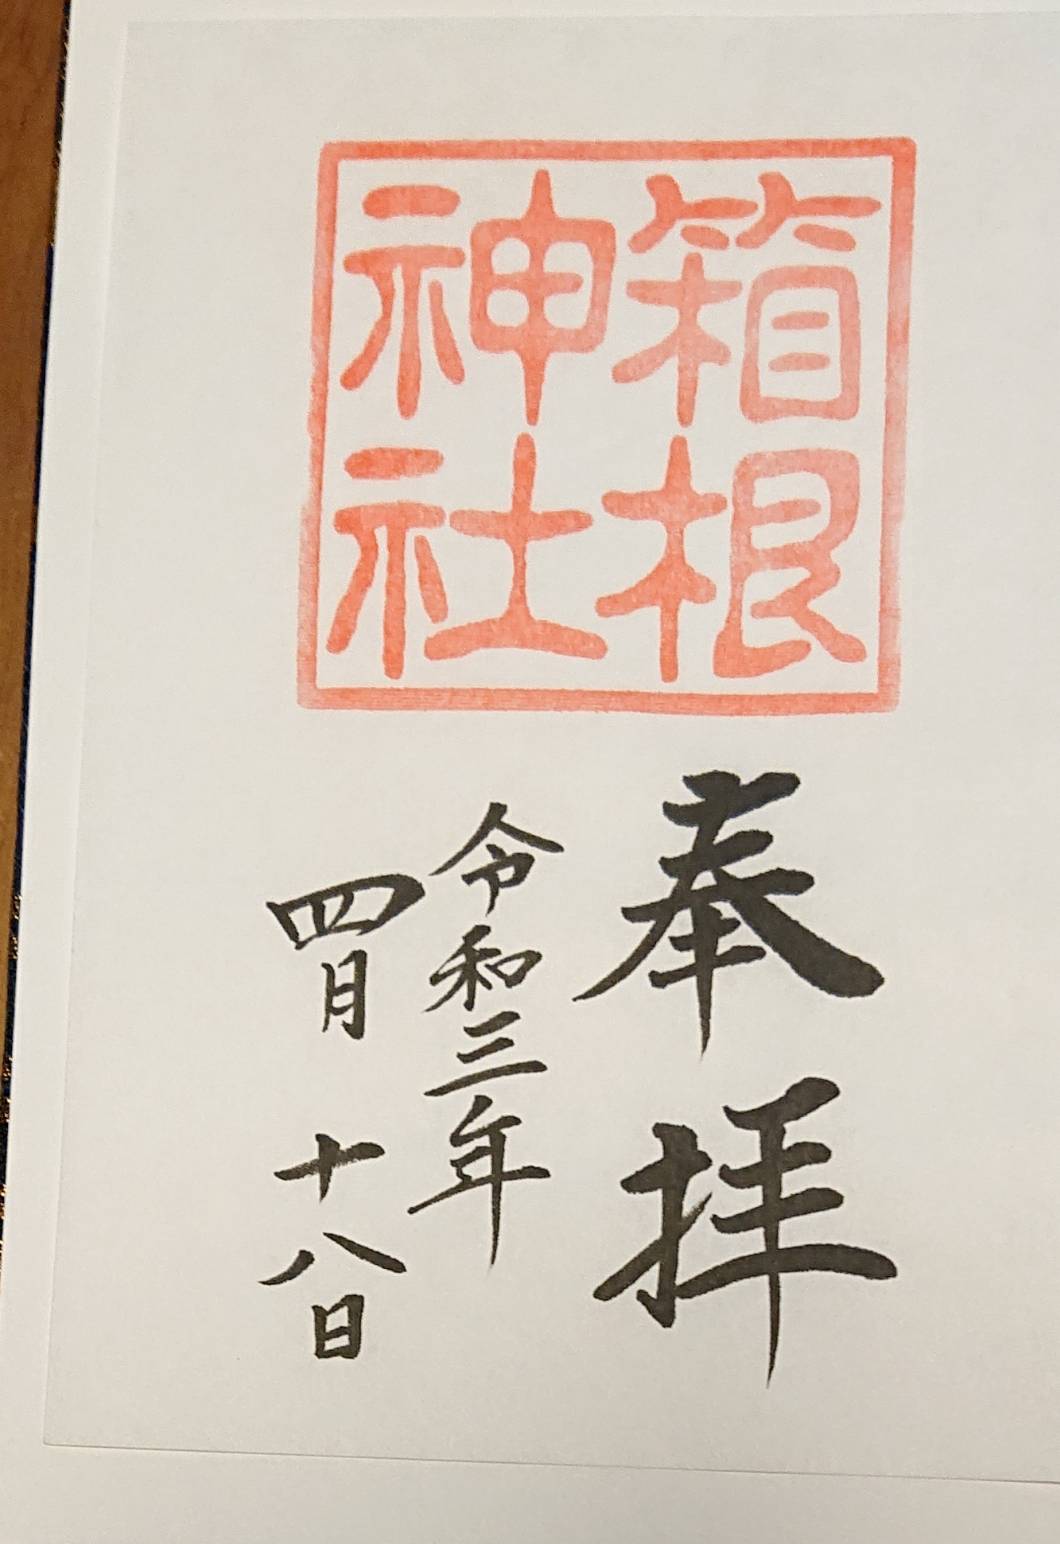 箱根
神社
奉拝
令和三年
四月十八日